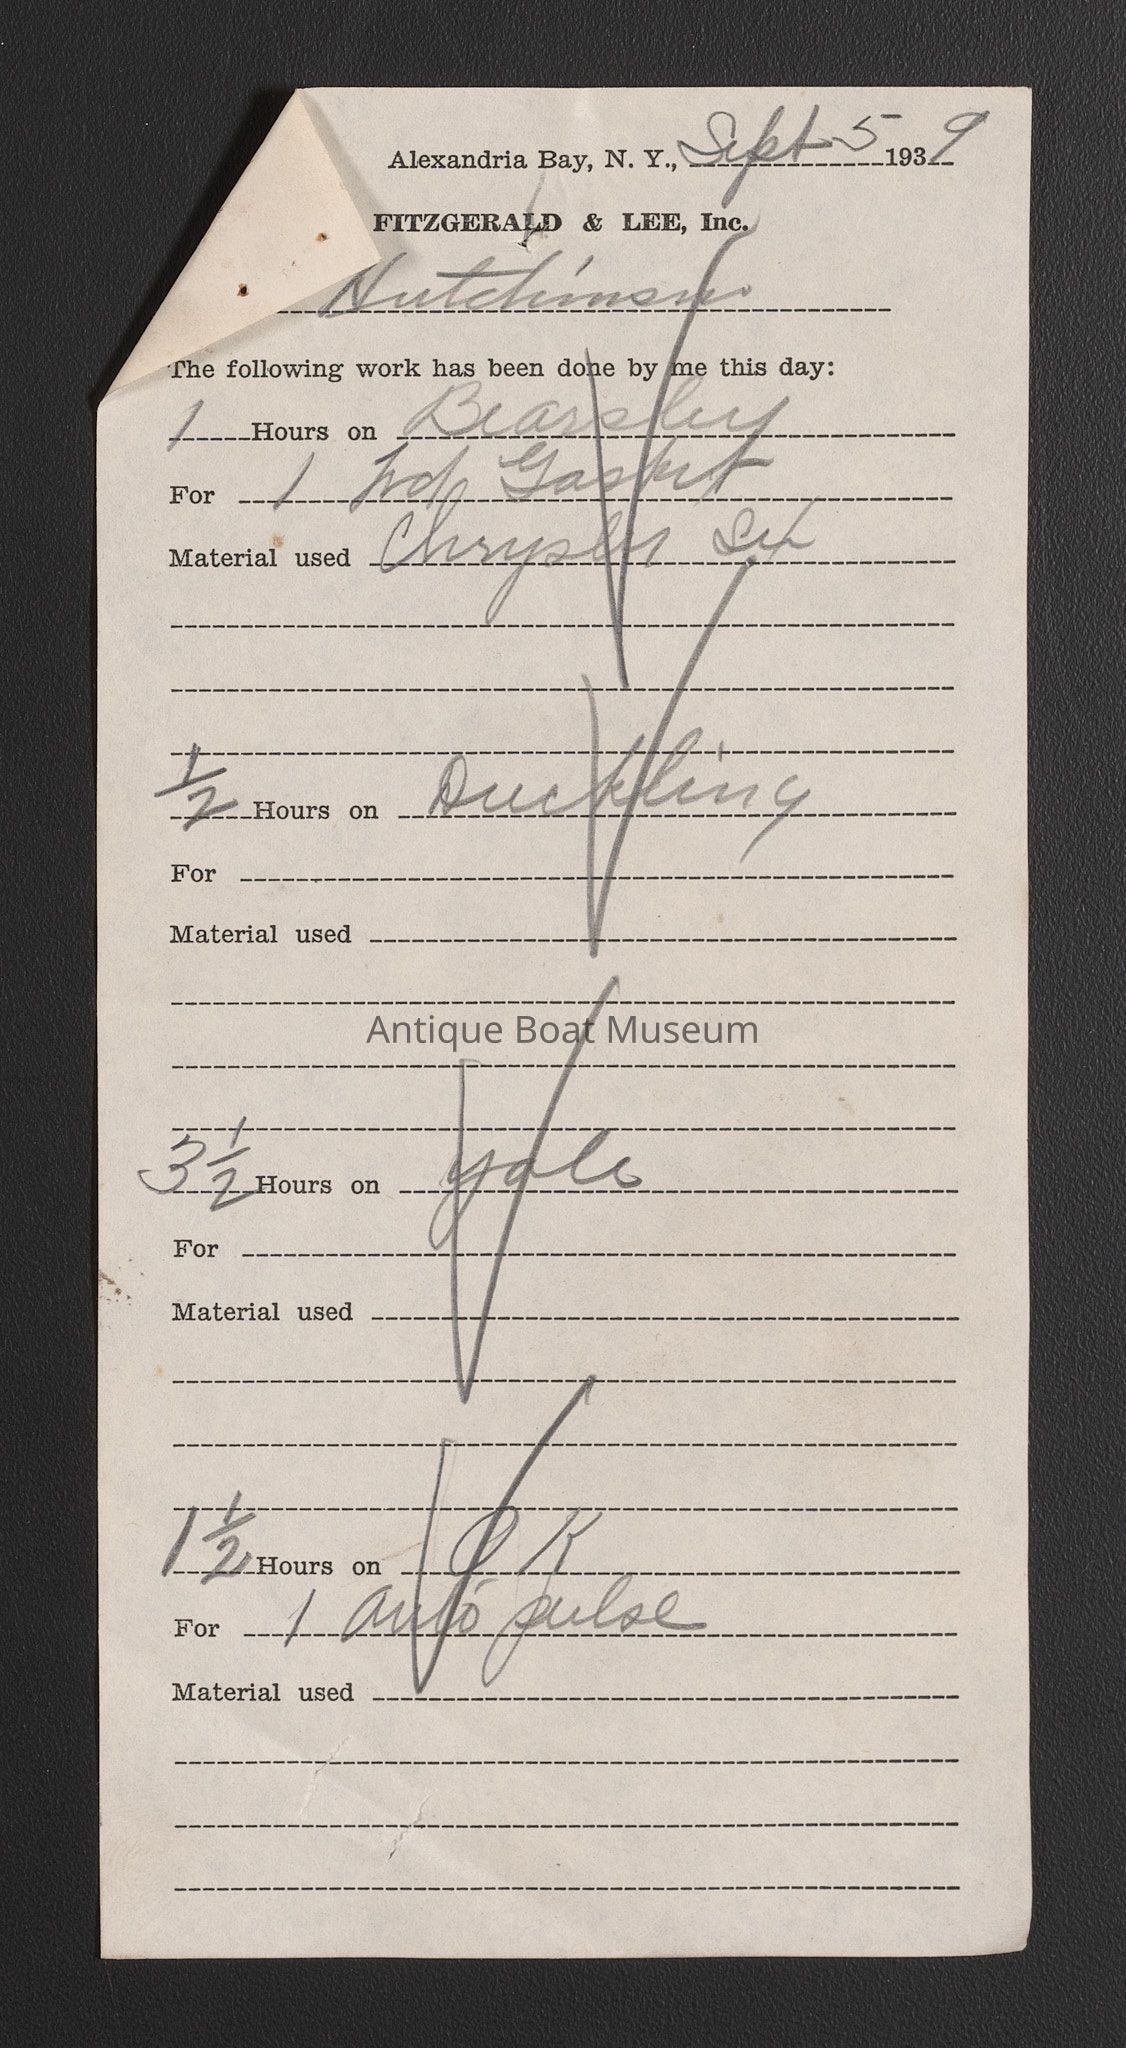 Alexandria Bay, N. Y., Sept 5 1939
FITZGERALD & LEE, Inc.
Hutchinson
The following work has been done by me this day:
1 Hours on Bearsley
For 1 hd Gasket
Material used Chrysler Six
1/2 Hours on Duckling
For
Material used
Antique Boat Museum
3 1/2 Hours on Yale
For
Material used
1 1/2 Hours on O K
For 1 auto pulse
Material used